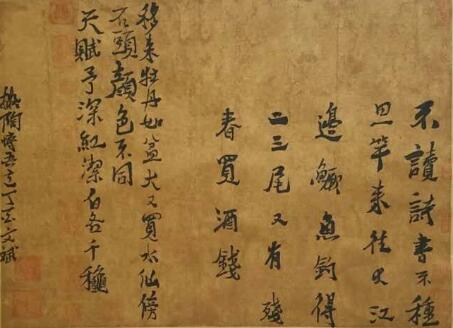 不讀詩書不種
田一竿来往大江
邊鱖魚釣得
二三尾又有殘
春買酒錢
移来牡丹如盆大又買水仙傍
石頭顏色不同
天賦予深紅潔白各千種
文斌